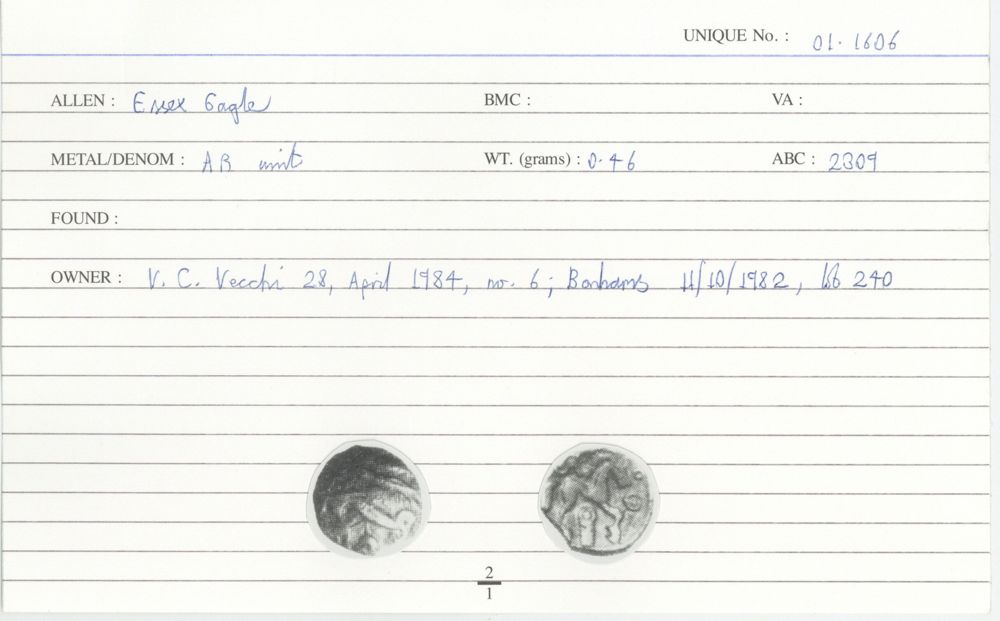 UNIQUE No. : 01. 1606
ALLEN : Essex Eagle BMC : VA :
METAL/DENOM : AR unit WT. (grams) : 0.46 ABC : 2309
FOUND :
OWNER : V. C. Vecchi 28, April 1984, no. 6; Bonhams 11/10/1982, lot 240
2
1